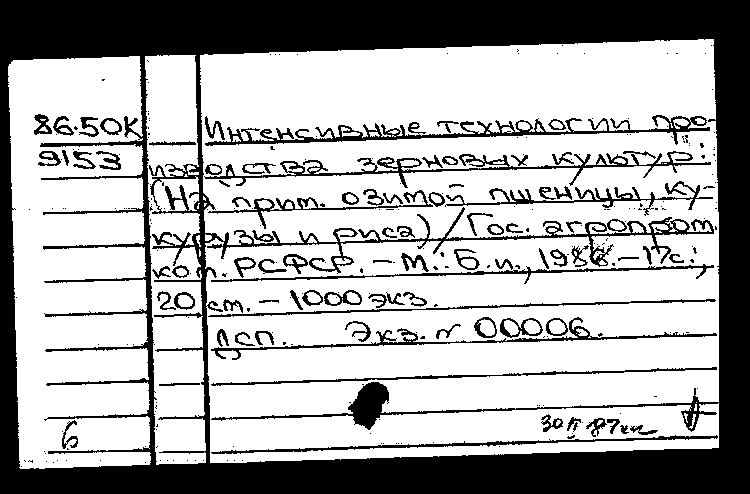 86-50К Интенсивные технологии про-
9153 изводства зерновых культур:
(На прим. озимой пшеницы, ку-
курузы и риса) / Гос. агропром.
ком. РСФСР. - М.: Б.и., 1986. - 17с.;
20 см. - 1000 экз.
Дсп. Экз. № 00006.
6